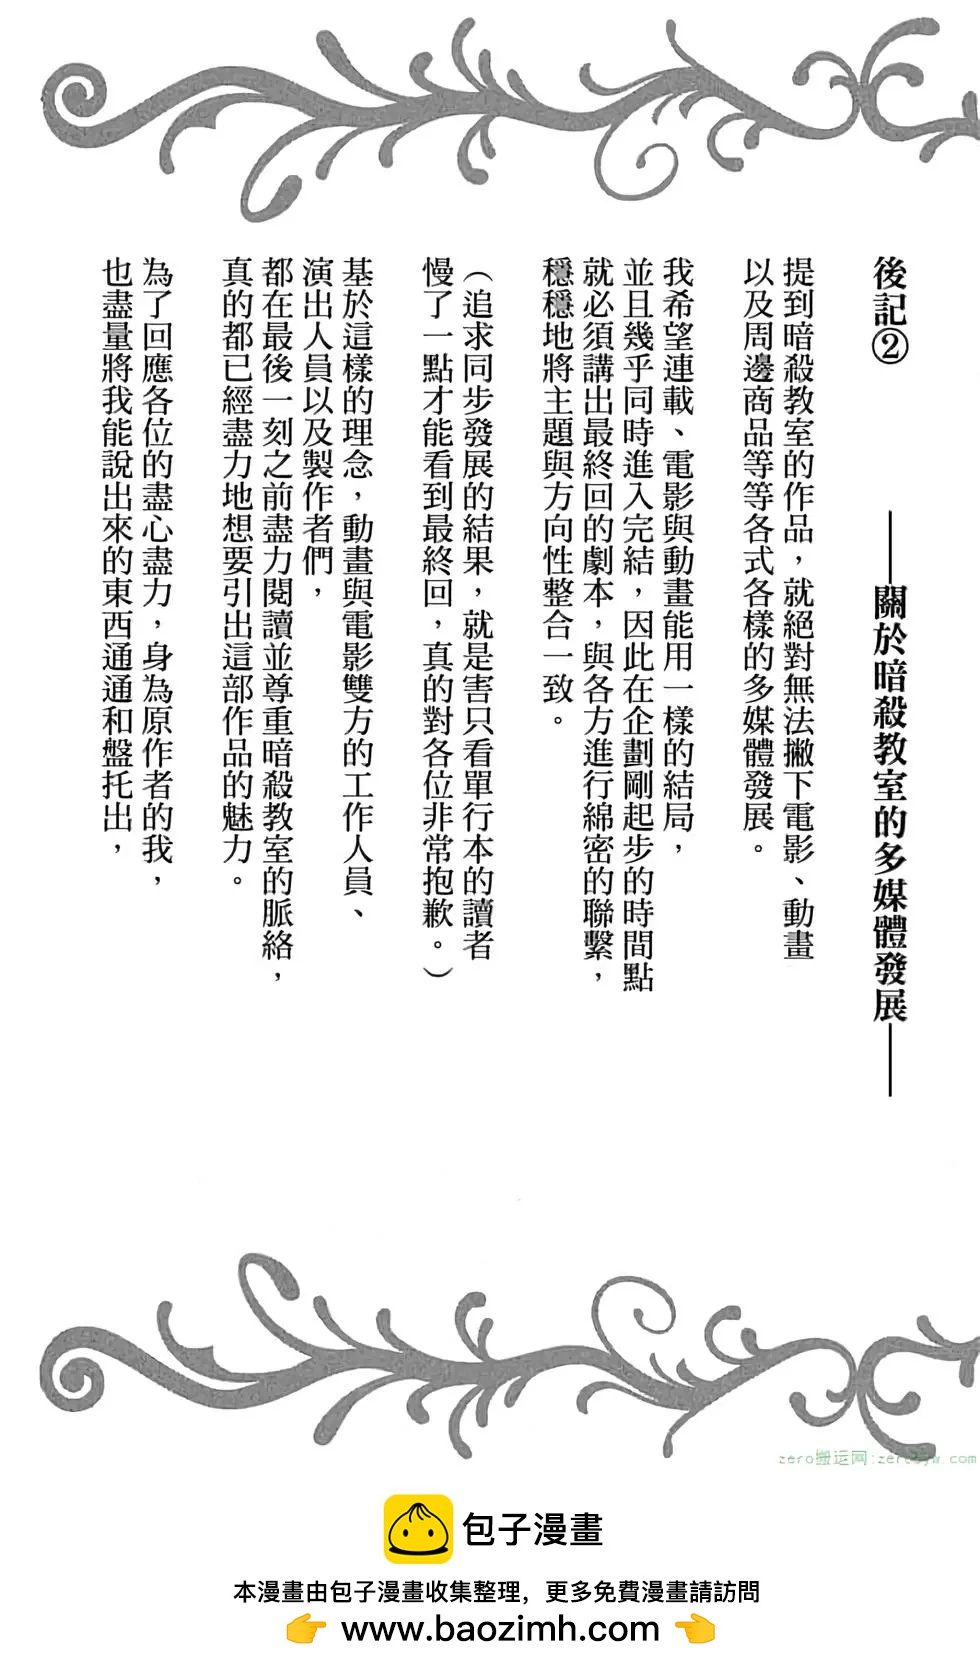 後記②
——關於暗殺教室的多媒體發展——
提到暗殺教室的作品，就絕對無法撇下電影、動畫
以及周邊商品等等各式各樣的多媒體發展。
我希望連載、電影與動畫能用一樣的結局，
並且幾乎同時進入完結，因此在企劃剛起步的時間點
就必須講出最終回的劇本，與各方進行綿密的聯繫，
穩穩地將主題與方向性整合一致。
（追求同步發展的結果，就是害只看單行本的讀者
慢了一點才能看到最終回，真的對各位非常抱歉。）
基於這樣的理念，動畫與電影雙方的工作人員、
演出人員以及製作者們，
都在最後一刻之前盡力閱讀並尊重暗殺教室的脈絡，
真的都已經盡力地想要引出這部作品的魅力。
為了回應各位的盡心盡力，身為原作者的我，
也盡量將我能說出來的東西通通和盤托出，
zero搬运网:zerobyw.com
包子漫畫
本漫畫由包子漫畫收集整理，更多免費漫畫請訪問
👉 www.baozimh.com 👈